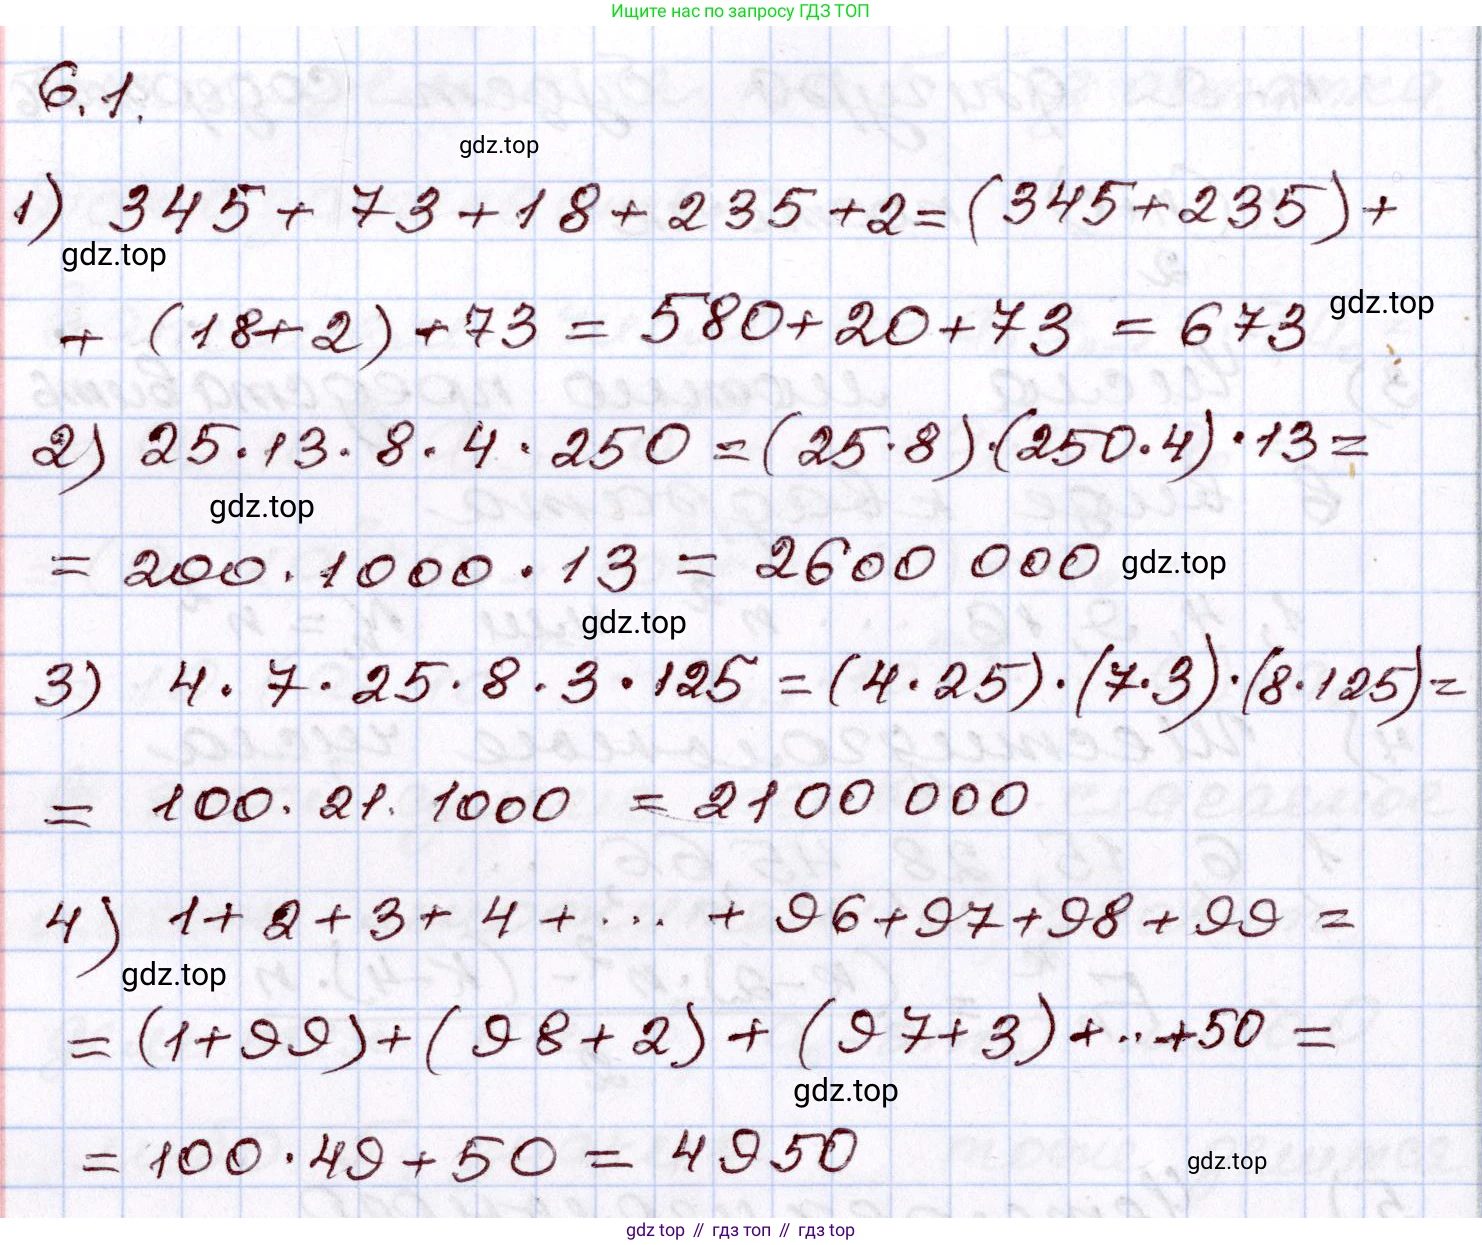 Ищите нас по запросу ГДЗ ТОП
6.1.
gdz.top
1) 345 + 73 + 18 + 235 + 2 = (345 + 235) +
gdz.top
+ (18 + 2) + 73 = 580 + 20 + 73 = 673 gdz.top
2) 25 · 13 · 8 · 4 · 250 = (25 · 8) · (250 · 4) · 13 =
gdz.top
= 200 · 1000 · 13 = 2600 000 gdz.top
gdz.top
3) 4 · 7 · 25 · 8 · 3 · 125 = (4 · 25) · (7 · 3) · (8 · 125) =
= 100 · 21 · 1000 = 2100 000
4) 1 + 2 + 3 + 4 + ... + 96 + 97 + 98 + 99 =
gdz.top
= (1 + 99) + (98 + 2) + (97 + 3) + ... + 50 =
gdz.top
= 100 · 49 + 50 = 4950
gdz.top
gdz top // гдз топ // гдз top